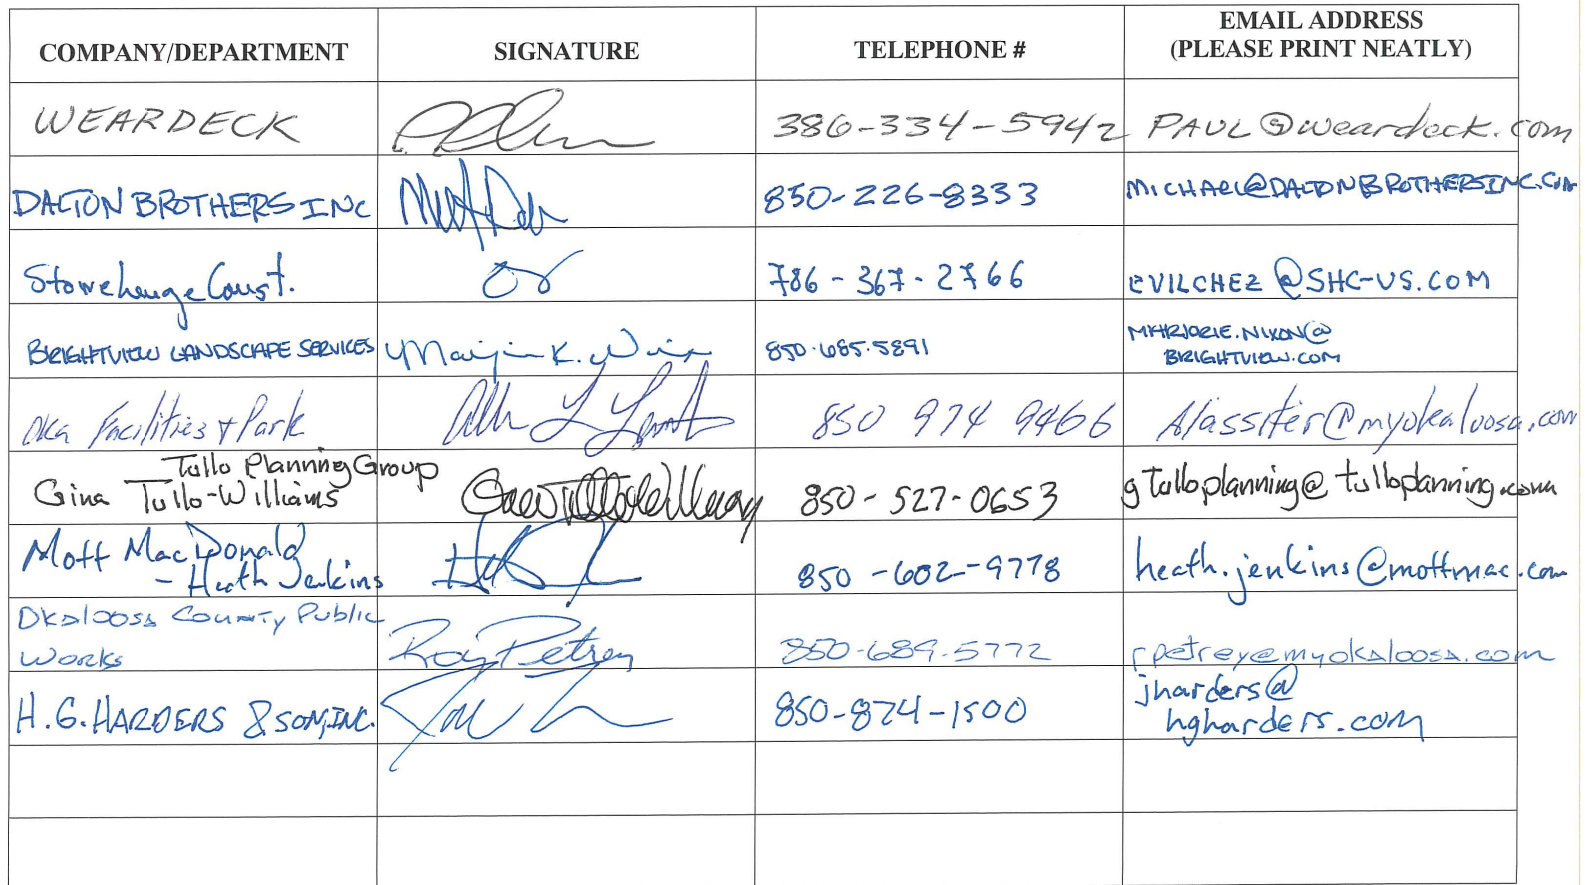 COMPANY/DEPARTMENT SIGNATURE TELEPHONE # EMAIL ADDRESS
(PLEASE PRINT NEATLY)
WEARDECK 386-334-5942 PAUL@weardeck.com
DALTON BROTHERS INC 850-226-8333 MICHAEL@DALTONBROTHERSINC.COM
Stonehenge Const. 786-367-2766 EVILCHEZ@SHC-US.COM
BRIGHTVIEW LANDSCAPE SERVICES Marjorie K. Nixon 850.685.5891 MARJORIE.NIXON@
BRIGHTVIEW.COM
Oka Facilities & Park 850 974 9466 Alassiter@myokaloosa.com
Tullo Planning Group
Gina Tullo-Williams 850-527-0653 gTulloplanning@tulloplanning.com
Mott MacDonald
- Heath Jenkins 850-602-9778 heath.jenkins@mottmac.com
Okaloosa County Public
Works Roy Petrey 850-689-5772 rpetrey@myokaloosa.com
H.G. HARDERS & SON, INC. 850-874-1500 jharders@
hgharders.com